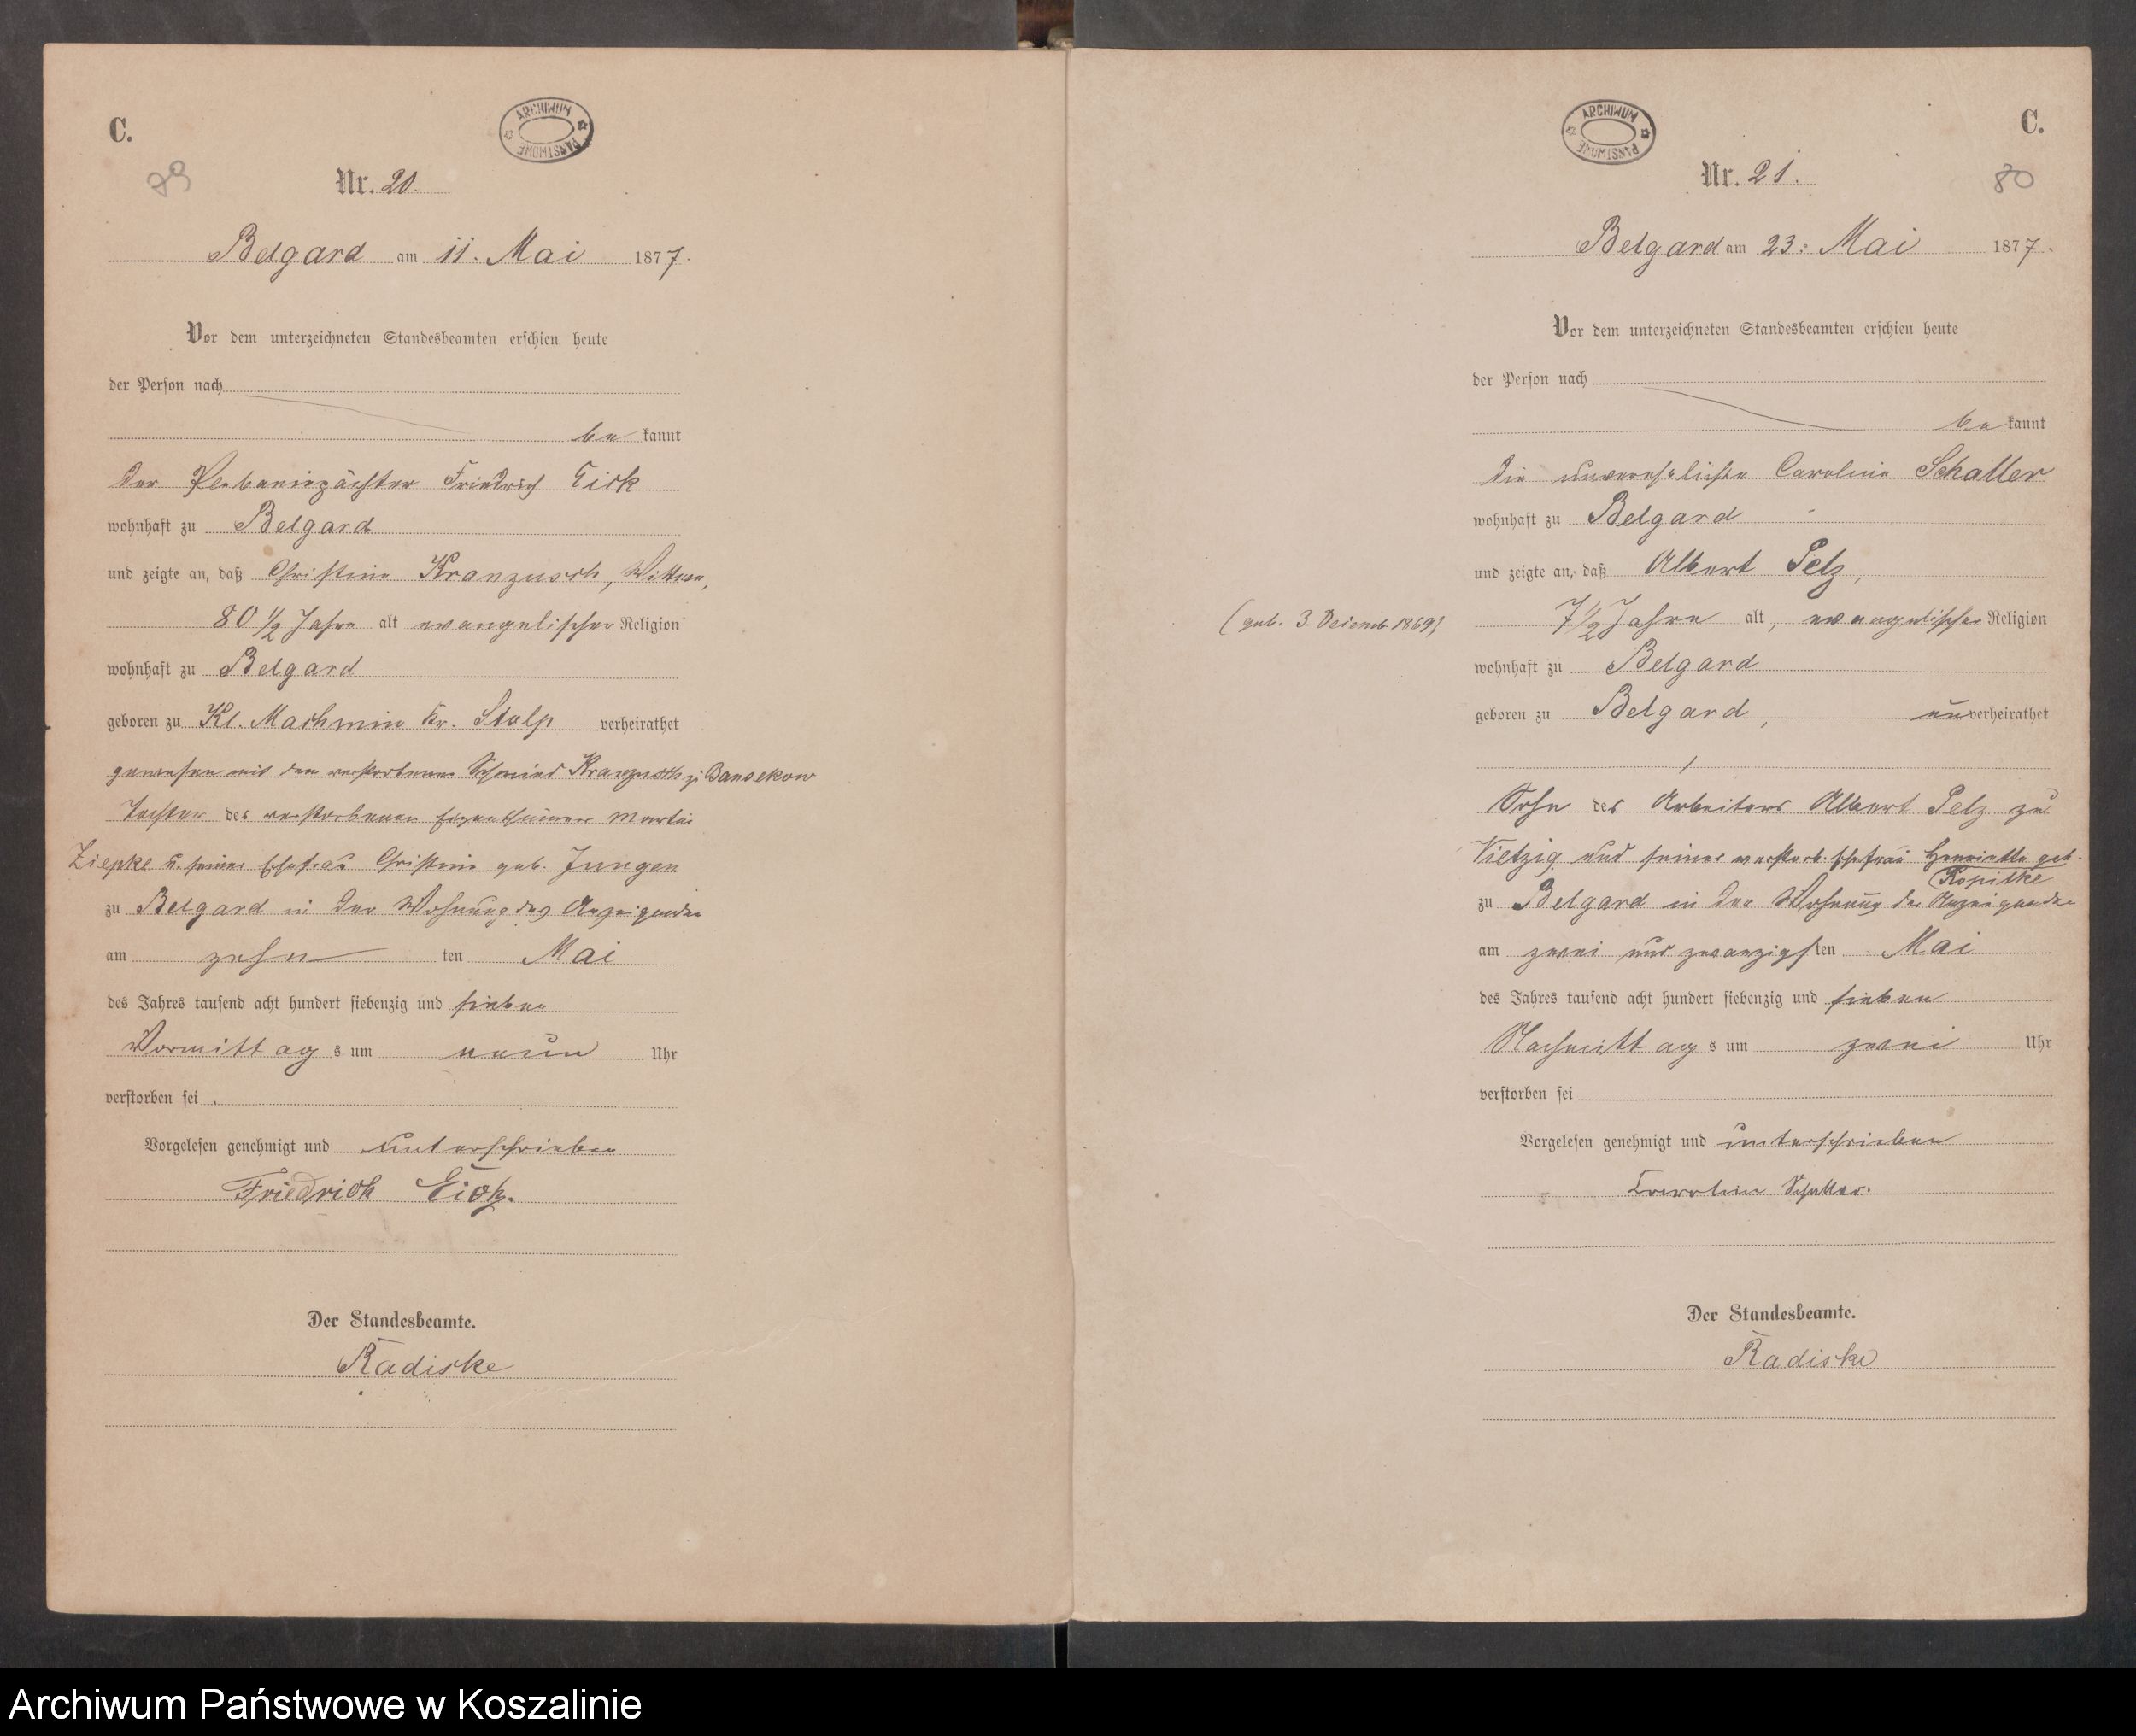 C.
ARCHIWUM PAŃSTWOWE
79
Nr. 20.
Belgard am 11. Mai 1877.
Vor dem unterzeichneten Standesbeamten erschien heute
der Person nach
be kannt
der Friedrich Eick
wohnhaft zu Belgard
und zeigte an, daß Christine Kranzusch, Wittwe,
80 1/2 Jahre alt evangelischer Religion
wohnhaft zu Belgard
geboren zu Kl. Machmin Kr. Stolp verheirathet
gewesen mit dem verstorbenen Schmied Kranzusch zu Bansekow
Tochter des verstorbenen Eigenthümers Martin
Ziepke u. seiner Ehefrau Christine geb. Jungen
zu Belgard in der Wohnung des Anzeigenden
am zehn ten Mai
des Jahres tausend acht hundert siebenzig und sieben
Vormittag s um neun Uhr
verstorben sei.
Vorgelesen genehmigt und unterschrieben
Friedrich Eick.
Der Standesbeamte.
Radiske
ARCHIWUM PAŃSTWOWE
C.
80
Nr. 21.
Belgard am 23. Mai 1877.
Vor dem unterzeichneten Standesbeamten erschien heute
der Person nach
be kannt
die unverehelichte Caroline Schaller
wohnhaft zu Belgard
und zeigte an, daß Albert Pelz,
(geb. 3. Decemb 1869) 7 1/2 Jahre alt, evangelischer Religion
wohnhaft zu Belgard
geboren zu Belgard, unverheirathet
Sohn des Arbeiters Albert Pelz zu
Vietzig und seiner verstorb. Ehefrau Henriette geb.
Kopitke
zu Belgard in der Wohnung der Anzeigenden
am zwei und zwanzigsten Mai
des Jahres tausend acht hundert siebenzig und sieben
Nachmittag s um zwei Uhr
verstorben sei
Vorgelesen genehmigt und unterschrieben
Caroline Schaller.
Der Standesbeamte.
Radiske
Archiwum Państwowe w Koszalinie